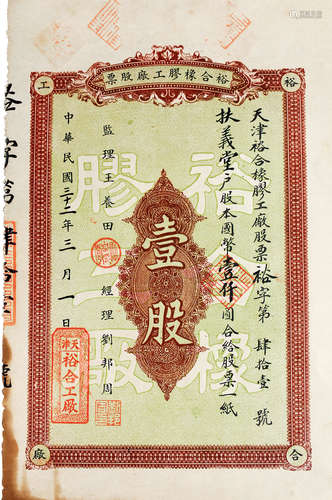 裕合橡膠工廠股票
裕
工
廠
合
天津裕合橡膠工廠股票裕字第肆拾壹號
扶義堂戶股本國幣壹仟圓合給股票一紙
裕橡
膠工廠
壹股
經理劉邦周
監理王養田
中華民國三十二年三月一日
天津
裕合工廠
字第肆拾壹號